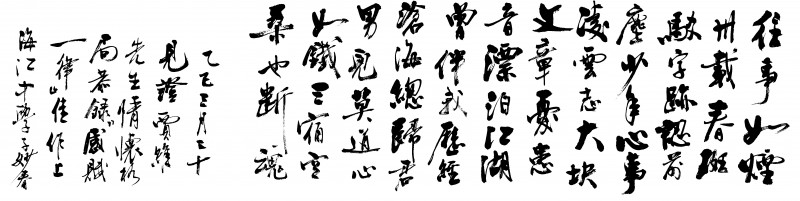 往事如煙
卅載春斑
駁字跡認前
塵少年心事
凌雲志大塊
文章憂患
音漂泊江湖
曾伴我歷經
滄海總歸君
男兒莫道心
如鐵三宿空
桑也斷魂
乙巳三月二十
見證賈
先生情懷
錄感賦
一律佳作上
海江